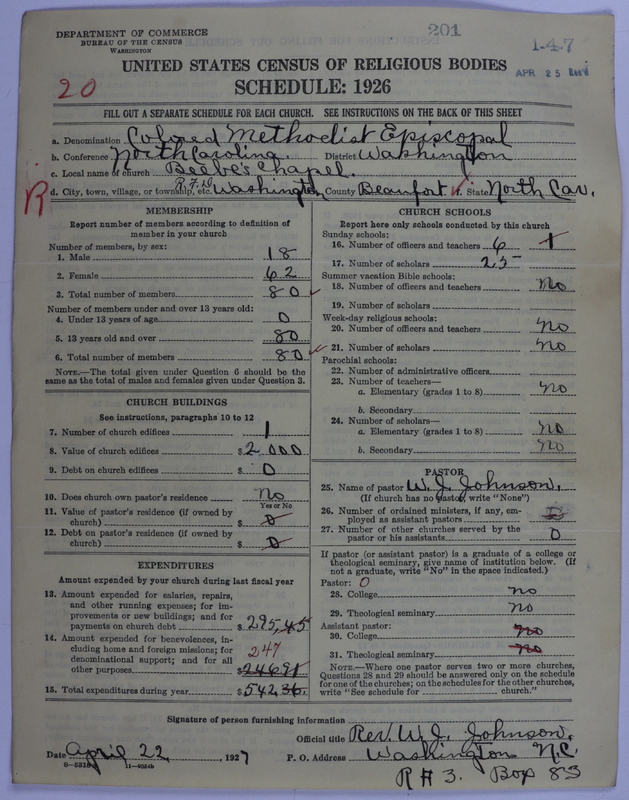 201
1-4-7
DEPARTMENT OF COMMERCE
BUREAU OF THE CENSUS
WASHINGTON
APR 25 Rec'd
UNITED STATES CENSUS OF RELIGIOUS BODIES
20
SCHEDULE: 1926
FILL OUT A SEPARATE SCHEDULE FOR EACH CHURCH. SEE INSTRUCTIONS ON THE BACK OF THIS SHEET
a. Denomination Colored Methodist Episcopal
b. Conference North Carolina. District Washington
c. Local name of church Beebe's Chapel.
R
d. City, town, village, or township, etc. Washington County Beaufort f. State North Car.
MEMBERSHIP
Report number of members according to definition of
member in your church
Number of members, by sex:
1. Male 18
2. Female 62
3. Total number of members 80
Number of members under and over 13 years old:
4. Under 13 years of age 0
5. 13 years old and over 80
6. Total number of members 80
NOTE.—The total given under Question 6 should be the
same as the total of males and females given under Question 3.
CHURCH BUILDINGS
See instructions, paragraphs 10 to 12
7. Number of church edifices 1
8. Value of church edifices $2000
9. Debt on church edifices $0
10. Does church own pastor's residence no
Yes or No
11. Value of pastor's residence (if owned by
church) $0
12. Debt on pastor's residence (if owned by
church) $0
EXPENDITURES
Amount expended by your church during last fiscal year
13. Amount expended for salaries, repairs,
and other running expenses; for im-
provements or new buildings; and for
payments on church debt $295,45
14. Amount expended for benevolences, in-
cluding home and foreign missions; for
denominational support; and for all
other purposes 247
$24691
15. Total expenditures during year $542,36.
CHURCH SCHOOLS
Report here only schools conducted by this church
Sunday schools:
16. Number of officers and teachers 6 1
17. Number of scholars 25
Summer vacation Bible schools:
18. Number of officers and teachers No
19. Number of scholars
Week-day religious schools:
20. Number of officers and teachers No
21. Number of scholars No
Parochial schools:
22. Number of administrative officers
23. Number of teachers—
a. Elementary (grades 1 to 8) No
b. Secondary
24. Number of scholars—
a. Elementary (grades 1 to 8) No
b. Secondary No
PASTOR
25. Name of pastor W. J. Johnson,
(If church has no pastor, write "None")
26. Number of ordained ministers, if any, em-
ployed as assistant pastors
27. Number of other churches served by the
pastor or his assistants 0
If pastor (or assistant pastor) is a graduate of a college or
theological seminary, give name of institution below. (If
not a graduate, write "No" in the space indicated.)
Pastor: 0
28. College no
29. Theological seminary no
Assistant pastor:
30. College no
31. Theological seminary no
NOTE.—Where one pastor serves two or more churches,
Questions 28 and 29 should be answered only on the schedule
for one of the churches; on the schedules for the other churches,
write "See schedule for church."
Signature of person furnishing information
Official title Rev. W. J. Johnson,
Date April 22, 1927 P. O. Address Washington N.C.
R # 3. Box 83